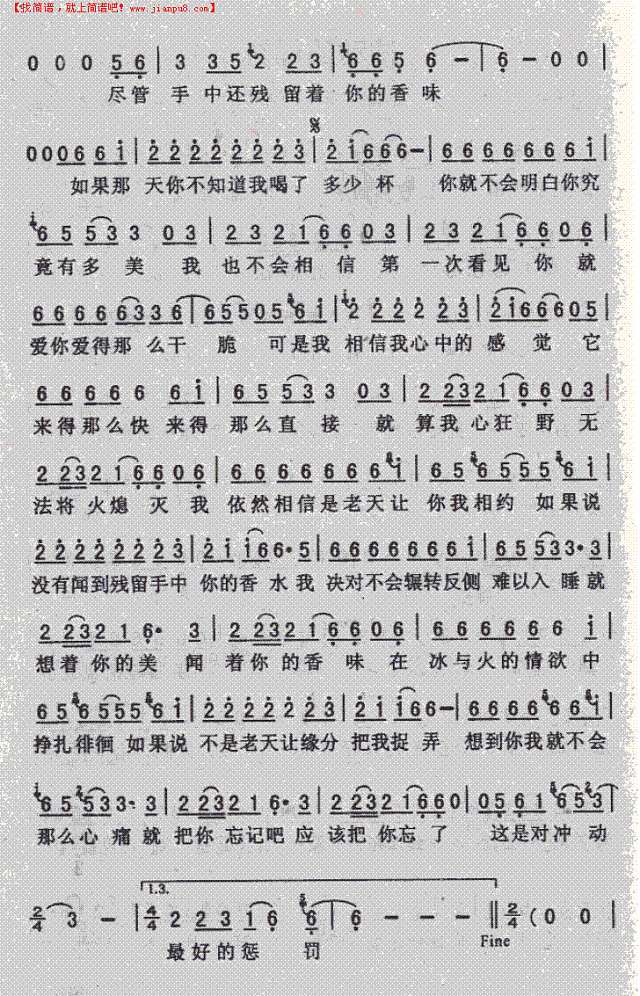 【找简谱，就上简谱吧！www.jianpu8.com】
0 0 0 5 6 | 3 3 5 2 2 3 | 6 6 5 6 – | 6 – 0 0 |
尽管 手 中还残 留着 你的香 味
0 0 0 6 6 i | 2 2 2 2 2 2 3 | 2 i 6 6 6 – | 6 6 6 6 6 6 6 i |
如果那 天你不知道我喝了 多少 杯 你就不会明白你究
6 5 5 3 3 0 3 | 2 3 2 1 6 6 0 3 | 2 3 2 1 6 6 0 6 |
竟有多 美 我 也不会相 信 第 一次看见 你 就
6 6 6 6 6 3 3 6 | 6 5 5 0 5 6 i | 2 2 2 2 2 3 | 2 i 6 6 6 0 5 |
爱你爱得那 么干 脆 可是我 相信我心中的 感 觉 它
6 6 6 6 6 6 i | 6 5 5 3 3 0 3 | 2 2 3 2 1 6 6 0 3 |
来得那么快 来得 那么直 接 就 算我心狂 野 无
2 2 3 2 1 6 6 0 6 | 6 6 6 6 6 6 6 i | 6 5 6 5 5 5 6 i |
法将火熄 灭 我 依然相信是老天让 你我相约 如果说
2 2 2 2 2 2 2 3 | 2 i i 6 6· 5 | 6 6 6 6 6 6 6 i | 6 5 5 3 3· 3 |
没有闻到残留手中 你的香 水我 决对不会辗转反侧 难以入 睡就
2 2 3 2 1 6· 3 | 2 2 3 2 1 6 6 0 6 | 6 6 6 6 6 6 i |
想着 你的美 闻 着你 的香 味 在 冰与火的情欲中
6 5 6 5 5 5 6 i | 2 2 2 2 2 2 3 | 2 i i 6 6 – | 6 6 6 6 6 6 i |
挣扎徘徊 如果说 不是老天让缘分 把我捉 弄 想到你我就不会
6 5 5 3 3· 3 | 2 2 3 2 1 6· 3 | 2 2 3 2 1 6 6 0 | 0 5 6 1 6 5 3 |
那么心 痛就 把你 忘记吧 应 该把 你忘 了 这是对冲 动
1.3.
2/4 3 – | 4/4 2 2 3 1 6 6 | 6 – – – || 2/4 ( 0 0 |
最好的惩 罚
Fine